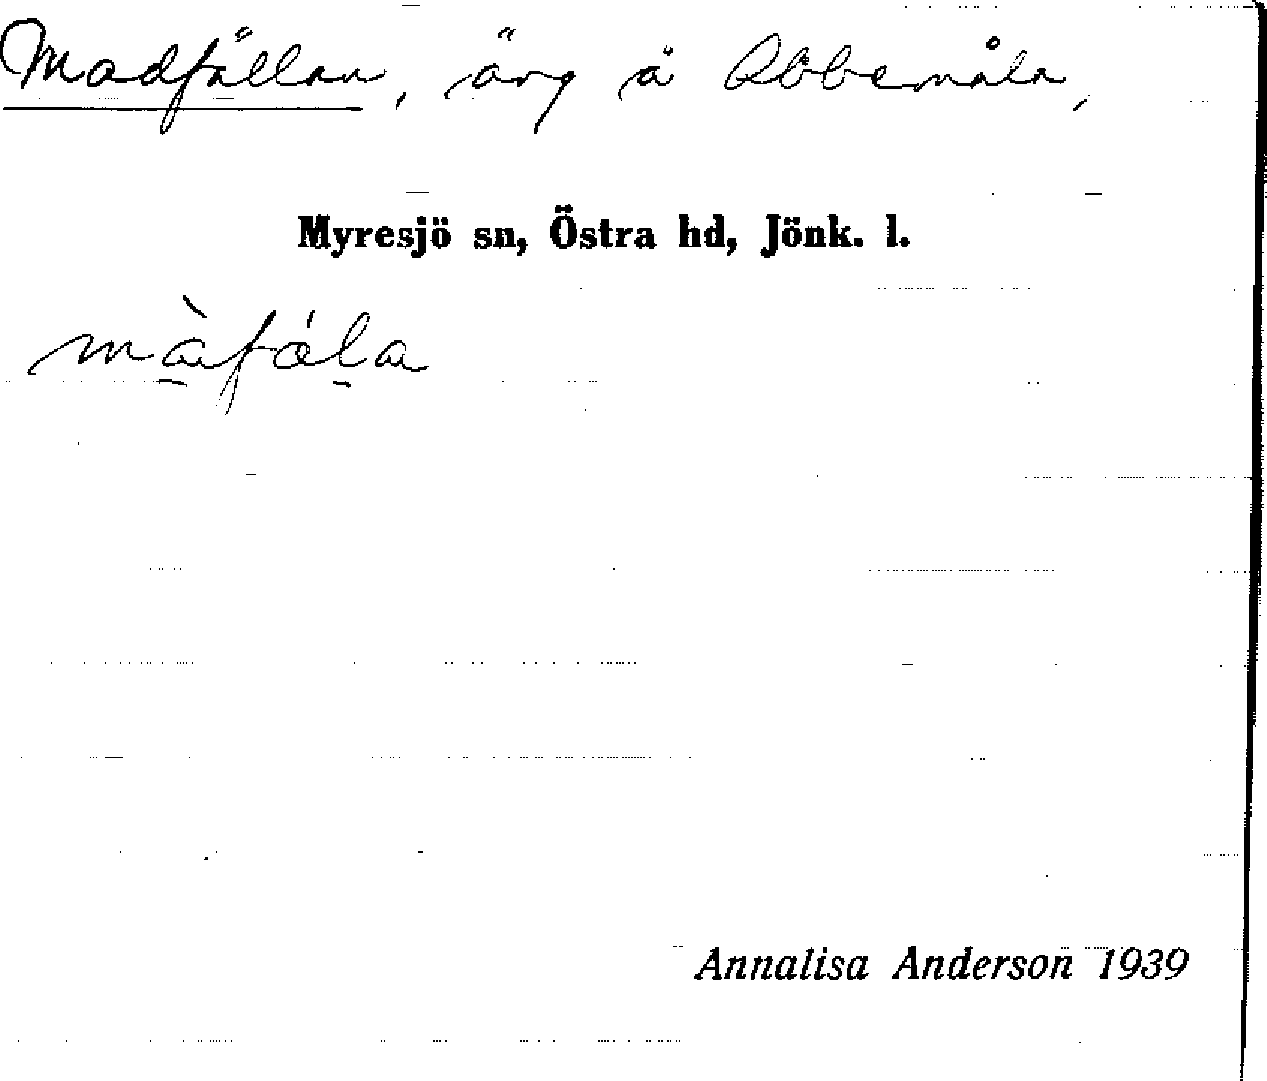 Madfållan, äng å Abbemåla,
Myresjö sn, Östra hd, Jönk. l.
màfåla
Annalisa Anderson 1939